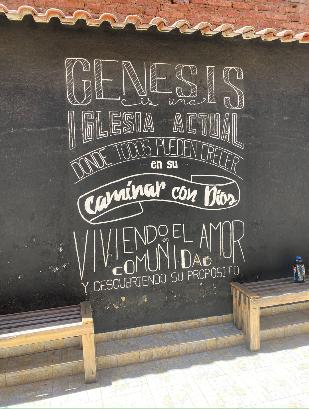 GENESIS
es una
IGLESIA ACTUAL
DONDE TODOS PUEDEN CRECER
en su
Caminar con Dios
VIVIENDO EL AMOR
en COMUNIDAD
Y DESCUBRIENDO SU PROPOSITO